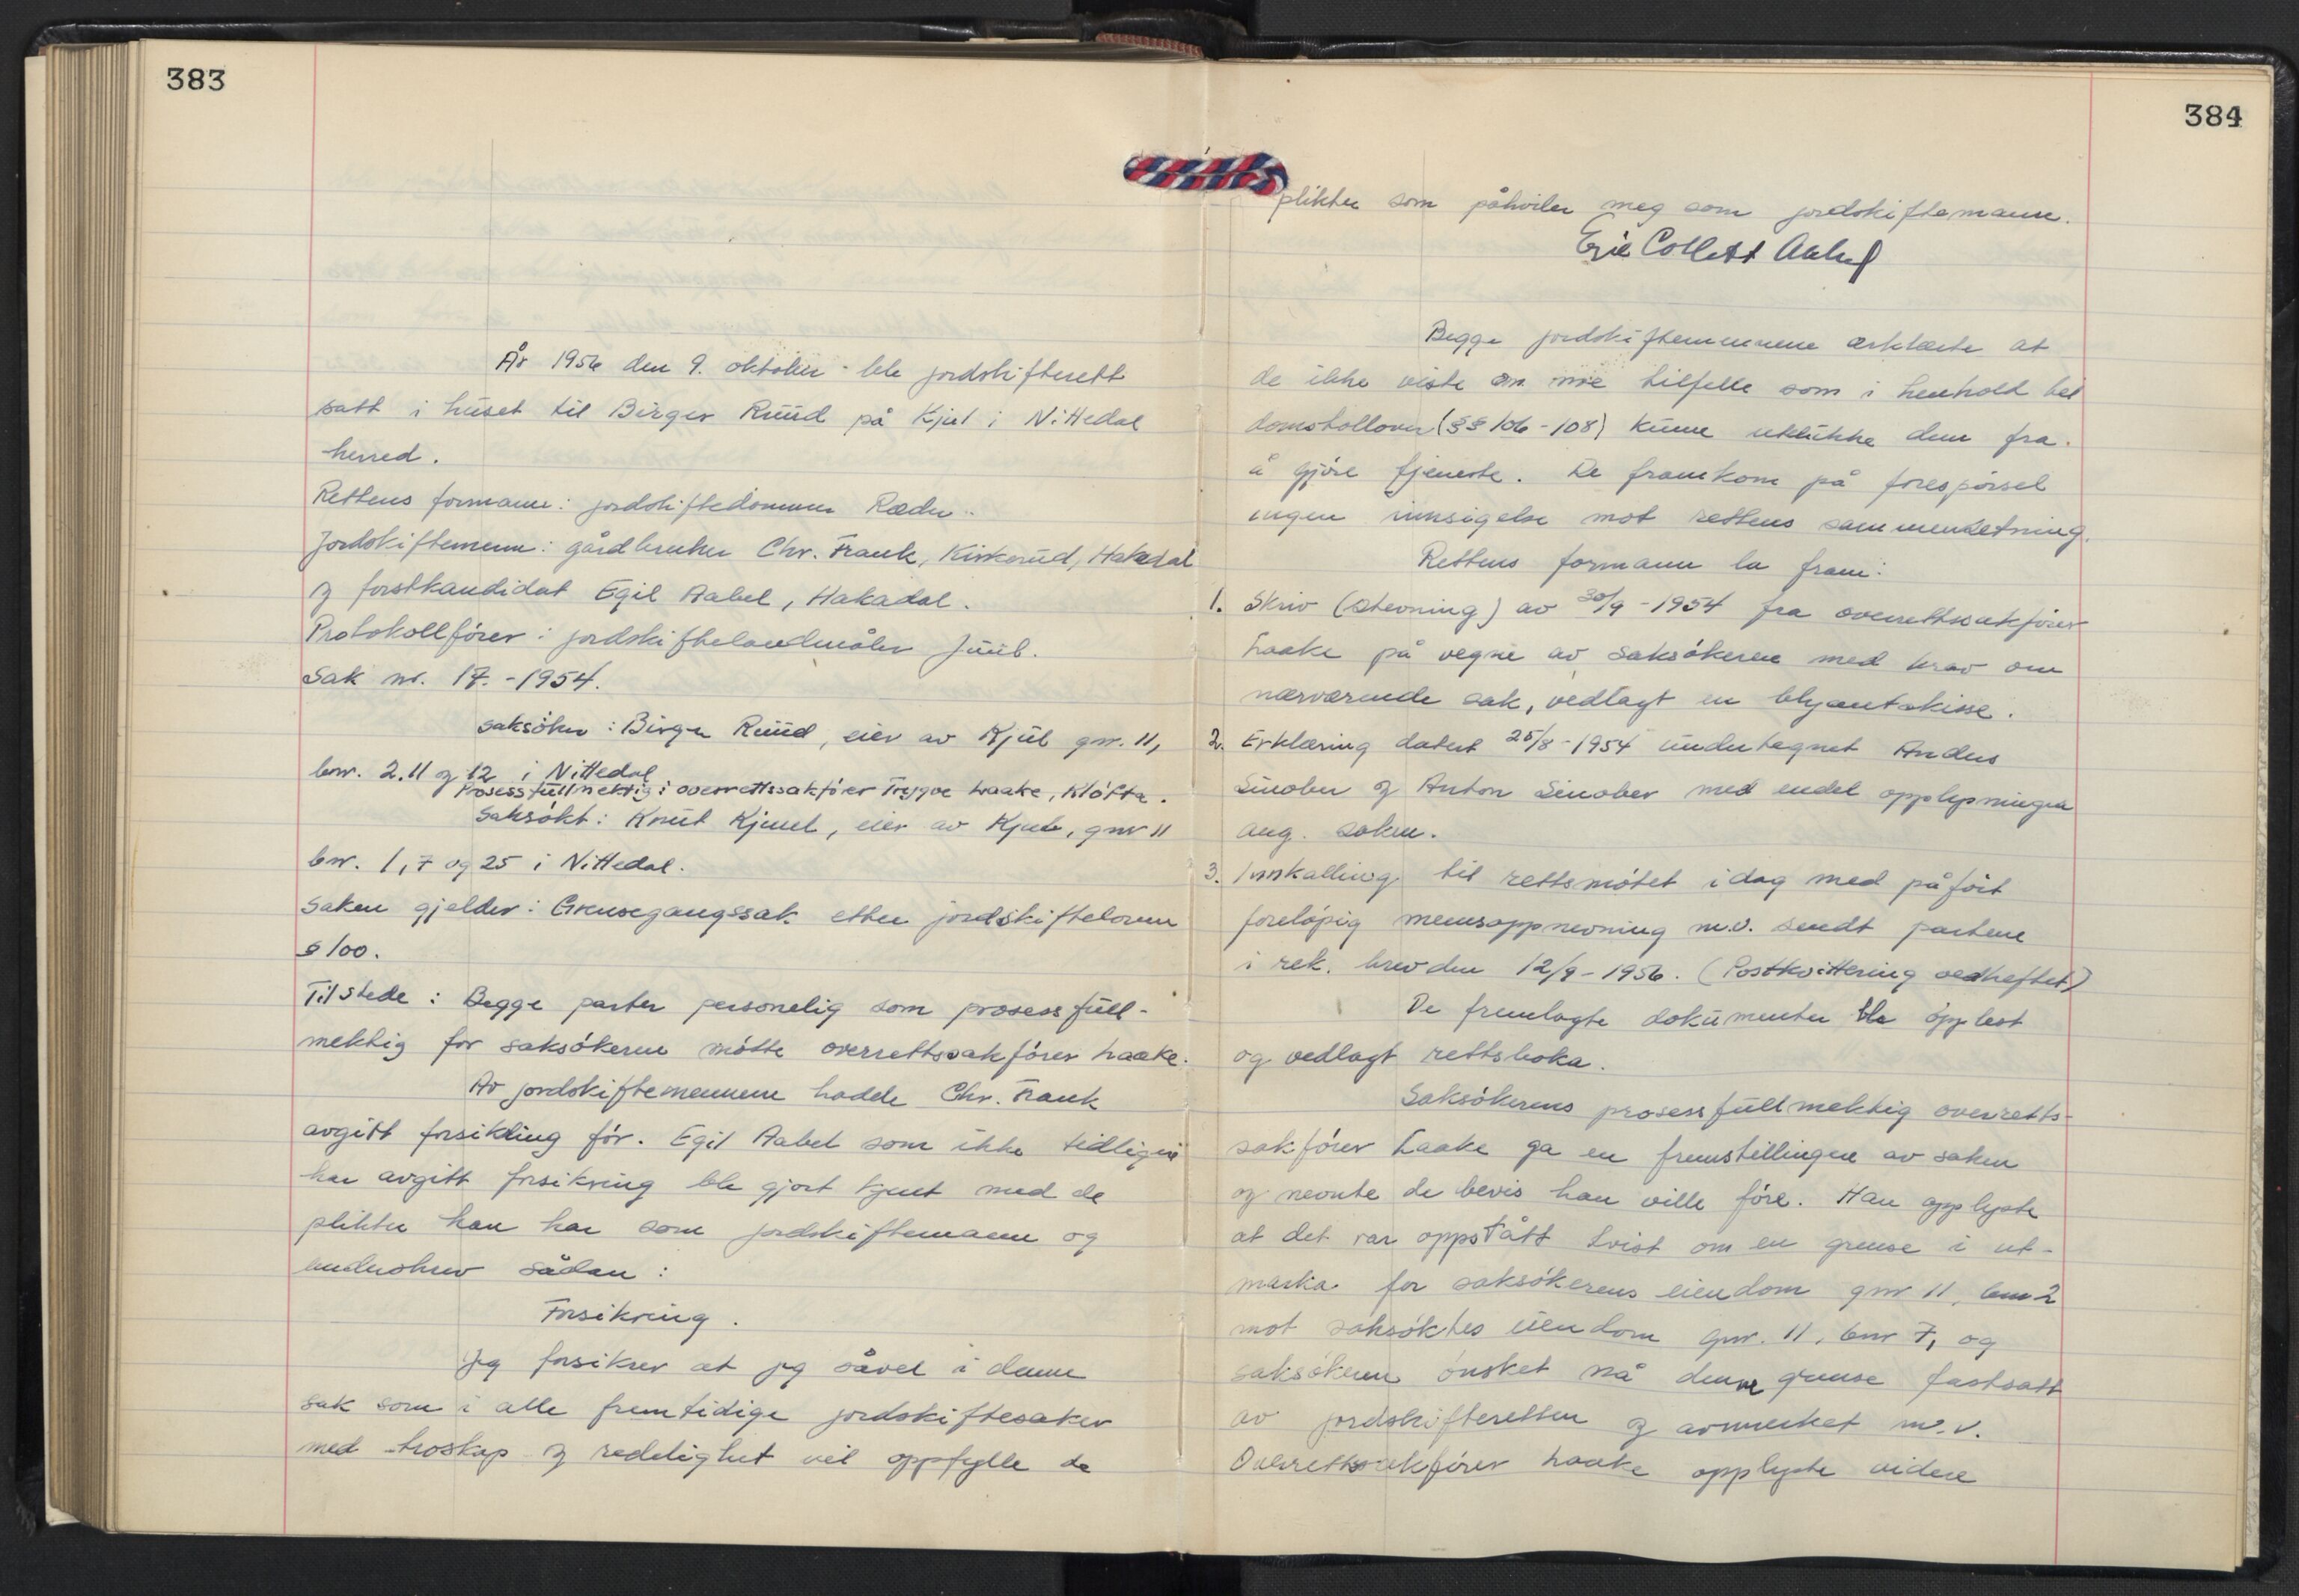 383
År 1956 den 9. oktober ble jordskifterett
satt i huset til Birger Ruud på Kjul i Nittedal
herred.
Rettens formann: jordskiftedommer Ræder.
Jordskiftemenn: gårdbruker Chr. Frank, Kirkerud, Hakadal
og forstkandidat Egil Aabel, Hakadal.
Protokollfører: jordskiftelandmåler Juul.
Sak nr. 17.-1954.
Saksøker: Birger Ruud, eier av Kjul gnr. 11,
bnr. 2, 11 og 12 i Nittedal
Prosessfullmektig: overrettssakfører Trygve Laake, Kløfta.
Saksøkt: Knut Kjuul, eier av Kjul, gnr 11
bnr. 1, 7 og 25 i Nittedal.
Saken gjelder: Grensegangssak etter jordskifteloven
§ 100.
Tilstede: Begge parter personelig som prosessfull-
mektig for saksøkeren møtte overrettssakfører Laake.
Av jordskiftemennene hadde Chr. Frank
avgitt forsikring før. Egil Aabel som ikke tidligere
har avgitt forsikring ble gjort kjent med de
plikter han har som jordskiftemann og
underskrev sådan:
Forsikring.
Jeg forsikrer at jeg såvel i denne
sak som i alle fremtidige jordskiftesaker
med troskap og redelighet vil oppfylle de
384
plikter som påhviler meg som jordskiftemann.
Collett Aabel
Begge jordskiftemennene erklærte at
de ikke viste om noe tilfelle som i henhold til
domstolloven (§§ 106-108) kunne utelukke dem fra
å gjøre tjeneste. De framkom på forespørsel
ingen innsigelse mot rettens sammensetning.
Rettens formann la fram:
1. Skriv (stevning) av 30/9-1954 fra overrettssakfører
Laake på vegne av saksøkeren med krav om
nærværende sak, vedlagt en blyantskisse.
2. Erklæring datert 25/8-1954 undertegnet Anders
Sinober og Anton Sinober med endel opplysninger
ang. saken.
3. Innkalling til rettsmøtet idag med påført
foreløpig mennsoppnevning m.v. sendt partene
i rek. brev den 12/9-1956. (Postkvittering vedheftet)
De fremlagte dokumenter ble opplest
og vedlagt rettsboka.
Saksøkerens prosessfullmektig overretts-
sakfører Laake ga en fremstillingen av saken
og nevnte de bevis han ville føre. Han opplyste
at det var oppstått tvist om en grense i ut-
marka for saksøkerens eiendom gnr 11, bnr 2
mot saksøktes eiendom gnr. 11, bnr 7, og
saksøkeren ønsket nå denne grense fastsatt
av jordskifteretten og avmerket m.v.
Overrettssakfører Laake opplyste videre